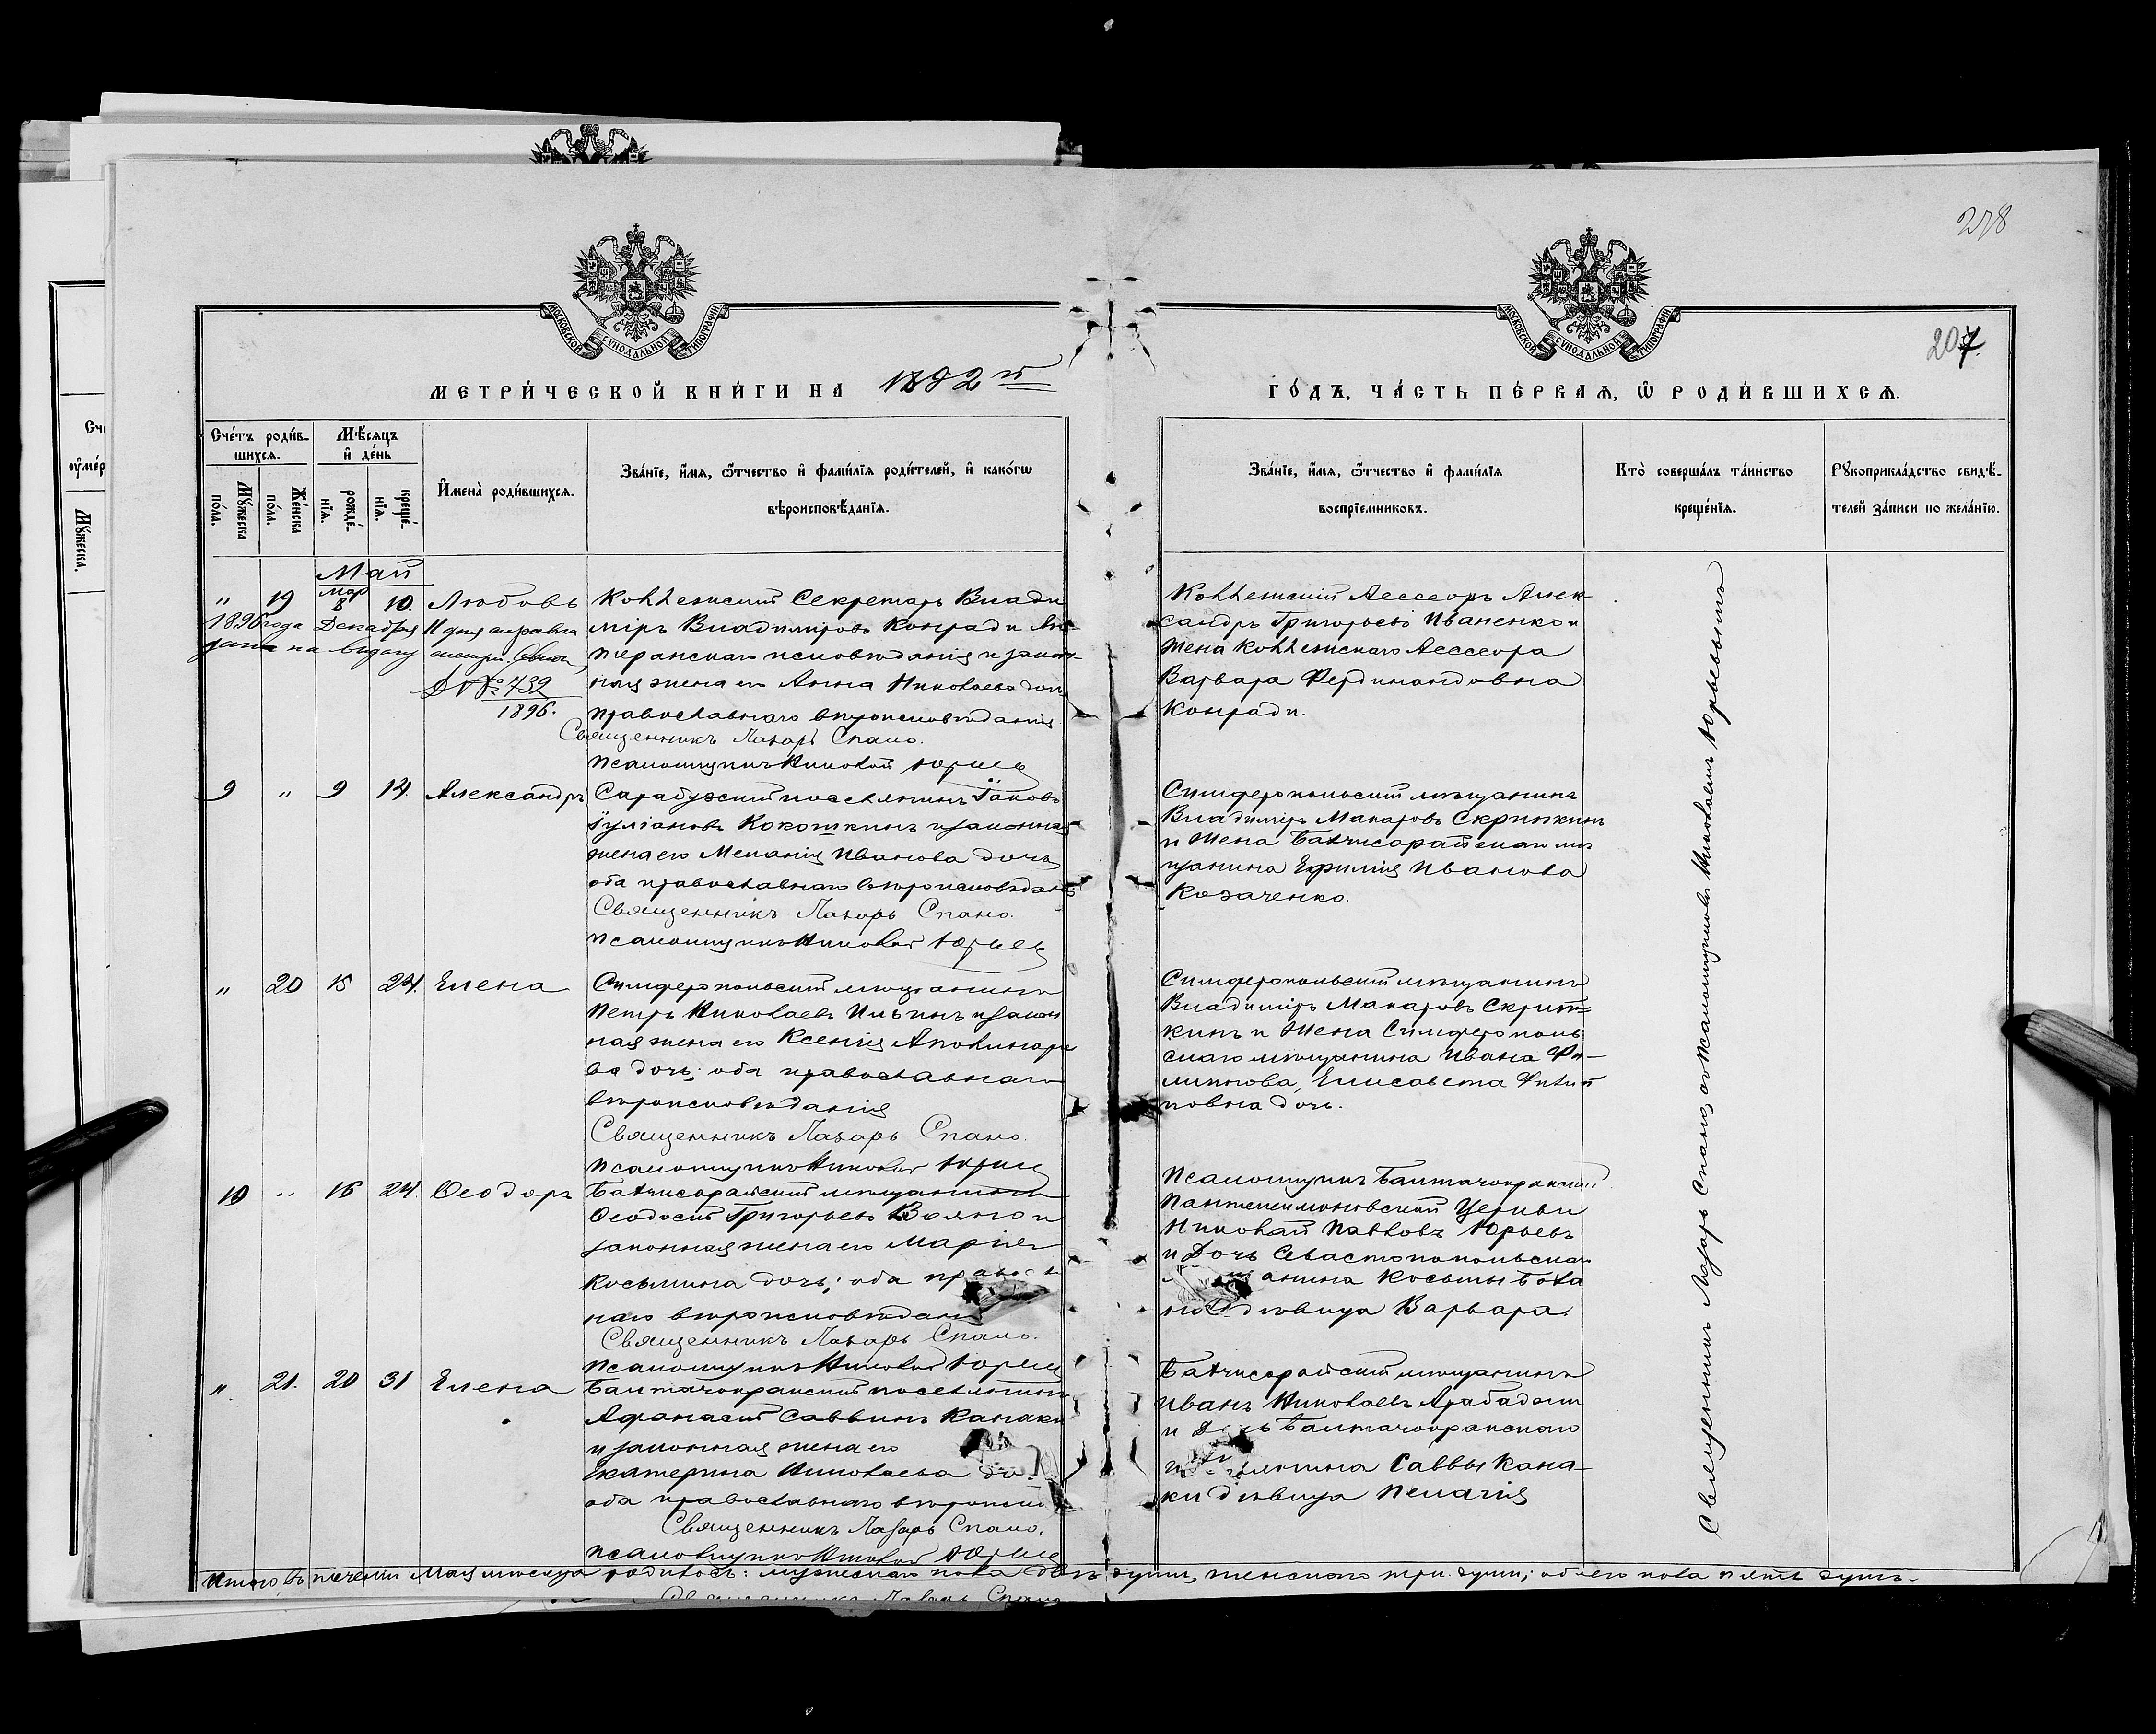 278
207.
МОСКОВСКОЙ СѴНОДАЛЬНОЙ ТИПОГРАФІИ
МОСКОВСКОЙ СѴНОДАЛЬНОЙ ТИПОГРАФІИ
МЕТРИ́ЧЕСКОЙ КНИ́ГИ НА 1892 й
ГО́ДЪ, ЧА́СТЬ ПЕ́РВАЯ, Ѡ҆ РОДИ́ВШИХСЯ.
Сче́тъ роди́в-
шихся.
Му́жеска пола.
Же́нска пола.
Мѣ́сяцъ и҆ де́нь
рожде́нїя.
креще́нїя.
И҆мена̀ роди́вшихся.
Зва́нїе, и҆́мя, ѻ҆́тчество и҆ фами́лїя роди́телей, и҆ како́гѡ
вѣроисповѣ́данїя.
Зва́нїе, и҆́мя, ѻ҆́тчество и҆ фами́лїя
воспрїе́мниковъ.
Кто̀ соверша́лъ та́инство
креще́нїя.
Рꙋкоприкла́дство свидѣ́-
телей за́писи по жела́нїю.
Май
" 19 Мар 8 10. Любовь
1896 года Декабря 11 дня справка
дана на выдачу метри. Свид.
№ 739
1896.
Коллежскій Секретарь Влади
міръ Владиміровъ Конради Лю-
теранскаго исповѣданія и закон-
ная жена его Анна Николаева доч
православнаго вѣроисповѣданія
Священникъ Лазарь Спано.
Псаломщикъ Николай Юрьев
Коллежскій Ассесоръ Алек-
сандръ Григорьевъ Иваненко и
Жена Коллежскаго Ассесора
Варвара Фердинандовна
Конради.
9 " 9 14. Александръ
Сарабузскій поселянинъ Іаковъ
Іуліановъ Кокошкинъ и законная
жена его Меланія Иванова дочь
оба православнаго вѣроисповѣдан
Священникъ Лазарь Спано.
Псаломщикъ Николай Юрьев
Симферопольскій мѣщанинъ
Владиміръ Макаровъ Скрипкинъ
и Жена Бахчисарайскаго мѣ
щанина Ефимія Иванова
Козаченко.
" 20 15 24. Елена
Симферопольскій мѣщанинъ
Петръ Николаевъ Ильинъ и закон
ная жена его Ксенія Аполинарі
ва дочь; оба православнаго
вѣроисповѣданія
Священникъ Лазарь Спано.
Псаломщикъ Николай Юрьев
Симферопольскій мѣщанинъ
Владиміръ Макаровъ Скрип=
кинъ и Жена Симферополь
скаго мѣщанина Ивана Фи-
липпова, Елисавета Филип
повна дочь.
10 " 16 24. Ѳеодоръ
Бахчисарайскій мѣщанинъ
Ѳеодосій Григорьевъ и
законная жена его Марія
Косьмина дочь; оба правосл
наго вѣроисповѣдан
Священникъ Лазарь Спано.
Псаломщикъ Николай Юрьев
Псаломщикъ Балтачокракской
Пантелеимоновской Церкви
Николай Павловъ Юрьевъ
и Дочь Севастопопольска
анина Косьмы
дѣвица Варвара.
" 21. 20 31 Елена
Балтачокракскій поселянинъ
Афанасій Саввинъ Канаки
и законная жена его
Екатерина Николаева до
оба православнаго вѣроиспо
Священникъ Лазарь Спано.
Псаломщикъ Николай Юрьев
Бахчисарайскій мѣщанинъ
Иванъ Николаевъ Арабаджи
и Д чь Балтачокракскаго
лянина Саввы Кана-
ки дѣвица Пелагія
Священникъ Лазарь Спано, съ Псаломщикомъ Николаемъ Юрьевымъ
Итого въ теченіи Мая мѣсяца родилось: мужескаго пола двѣ души, женскаго три души; обоего пола пять душъ.
Священникъ Лазарь Спано